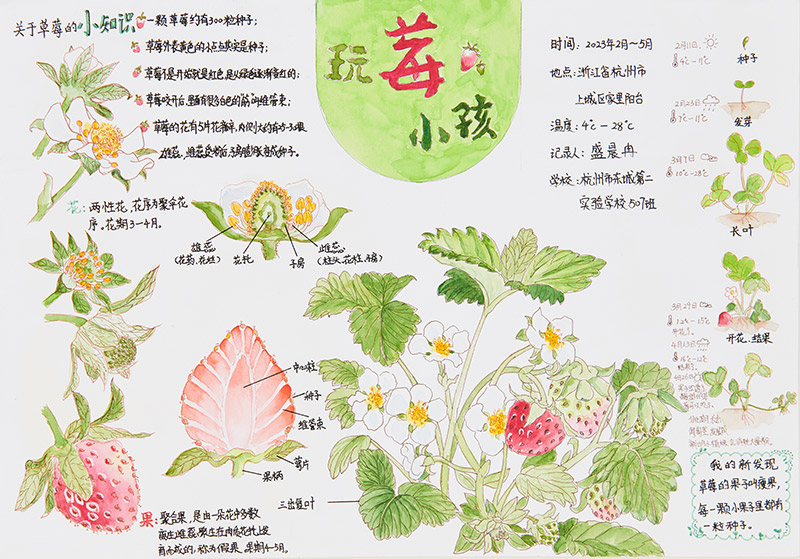 关于草莓的小知识
一颗草莓约有300粒种子；
草莓外表黄色的小点其实是种子；
草莓不是开始就是红色,是从绿色逐渐变红的；
草莓的花有5片花瓣
玩莓小孩
时间：2023年2月～5月
地点：浙江省杭州市
上城区家里阳台
温度：4℃－28℃
记录人：盛晨冉
学校：杭州市东城第二
实验学校507班
2月11日
4℃－11℃
种子
2月23日
7℃－11℃
发芽
3月7日
10℃－28℃
长叶
3月29日
12℃－15℃
开花、结果
4月13日
花：两性花,花序为聚伞花
序。花期3－4月。
雄蕊
(花药、花丝)
花托
子房
雌蕊
(柱头、花柱、子房)
中心柱
种子
维管束
萼片
果柄
三出复叶
果：聚合果,是由一朵花中多数
离生雌蕊聚生在肉质花托上发
育而成的,称为假果。果期4－5月。
我的新发现
草莓的果子叫瘦果,
每一颗小果子里都有
一粒种子。